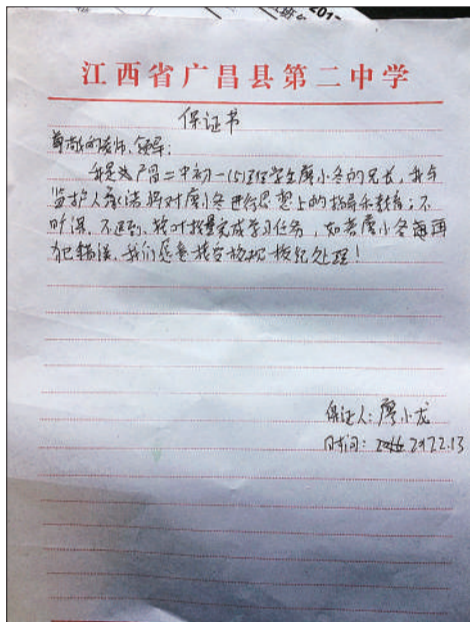 201
江西省广昌县第二中学
保证书
尊敬的老师、领导:
我是广昌二中初一(5)班学生廖小冬的兄长,我与
监护人承诺将对廖小冬进行思想上的指导和教育;不
旷课、不迟到、按时按量完成学习任务,如若廖小冬再
犯错误,我们愿意接受校规校纪处理!
保证人:廖小龙
时间: